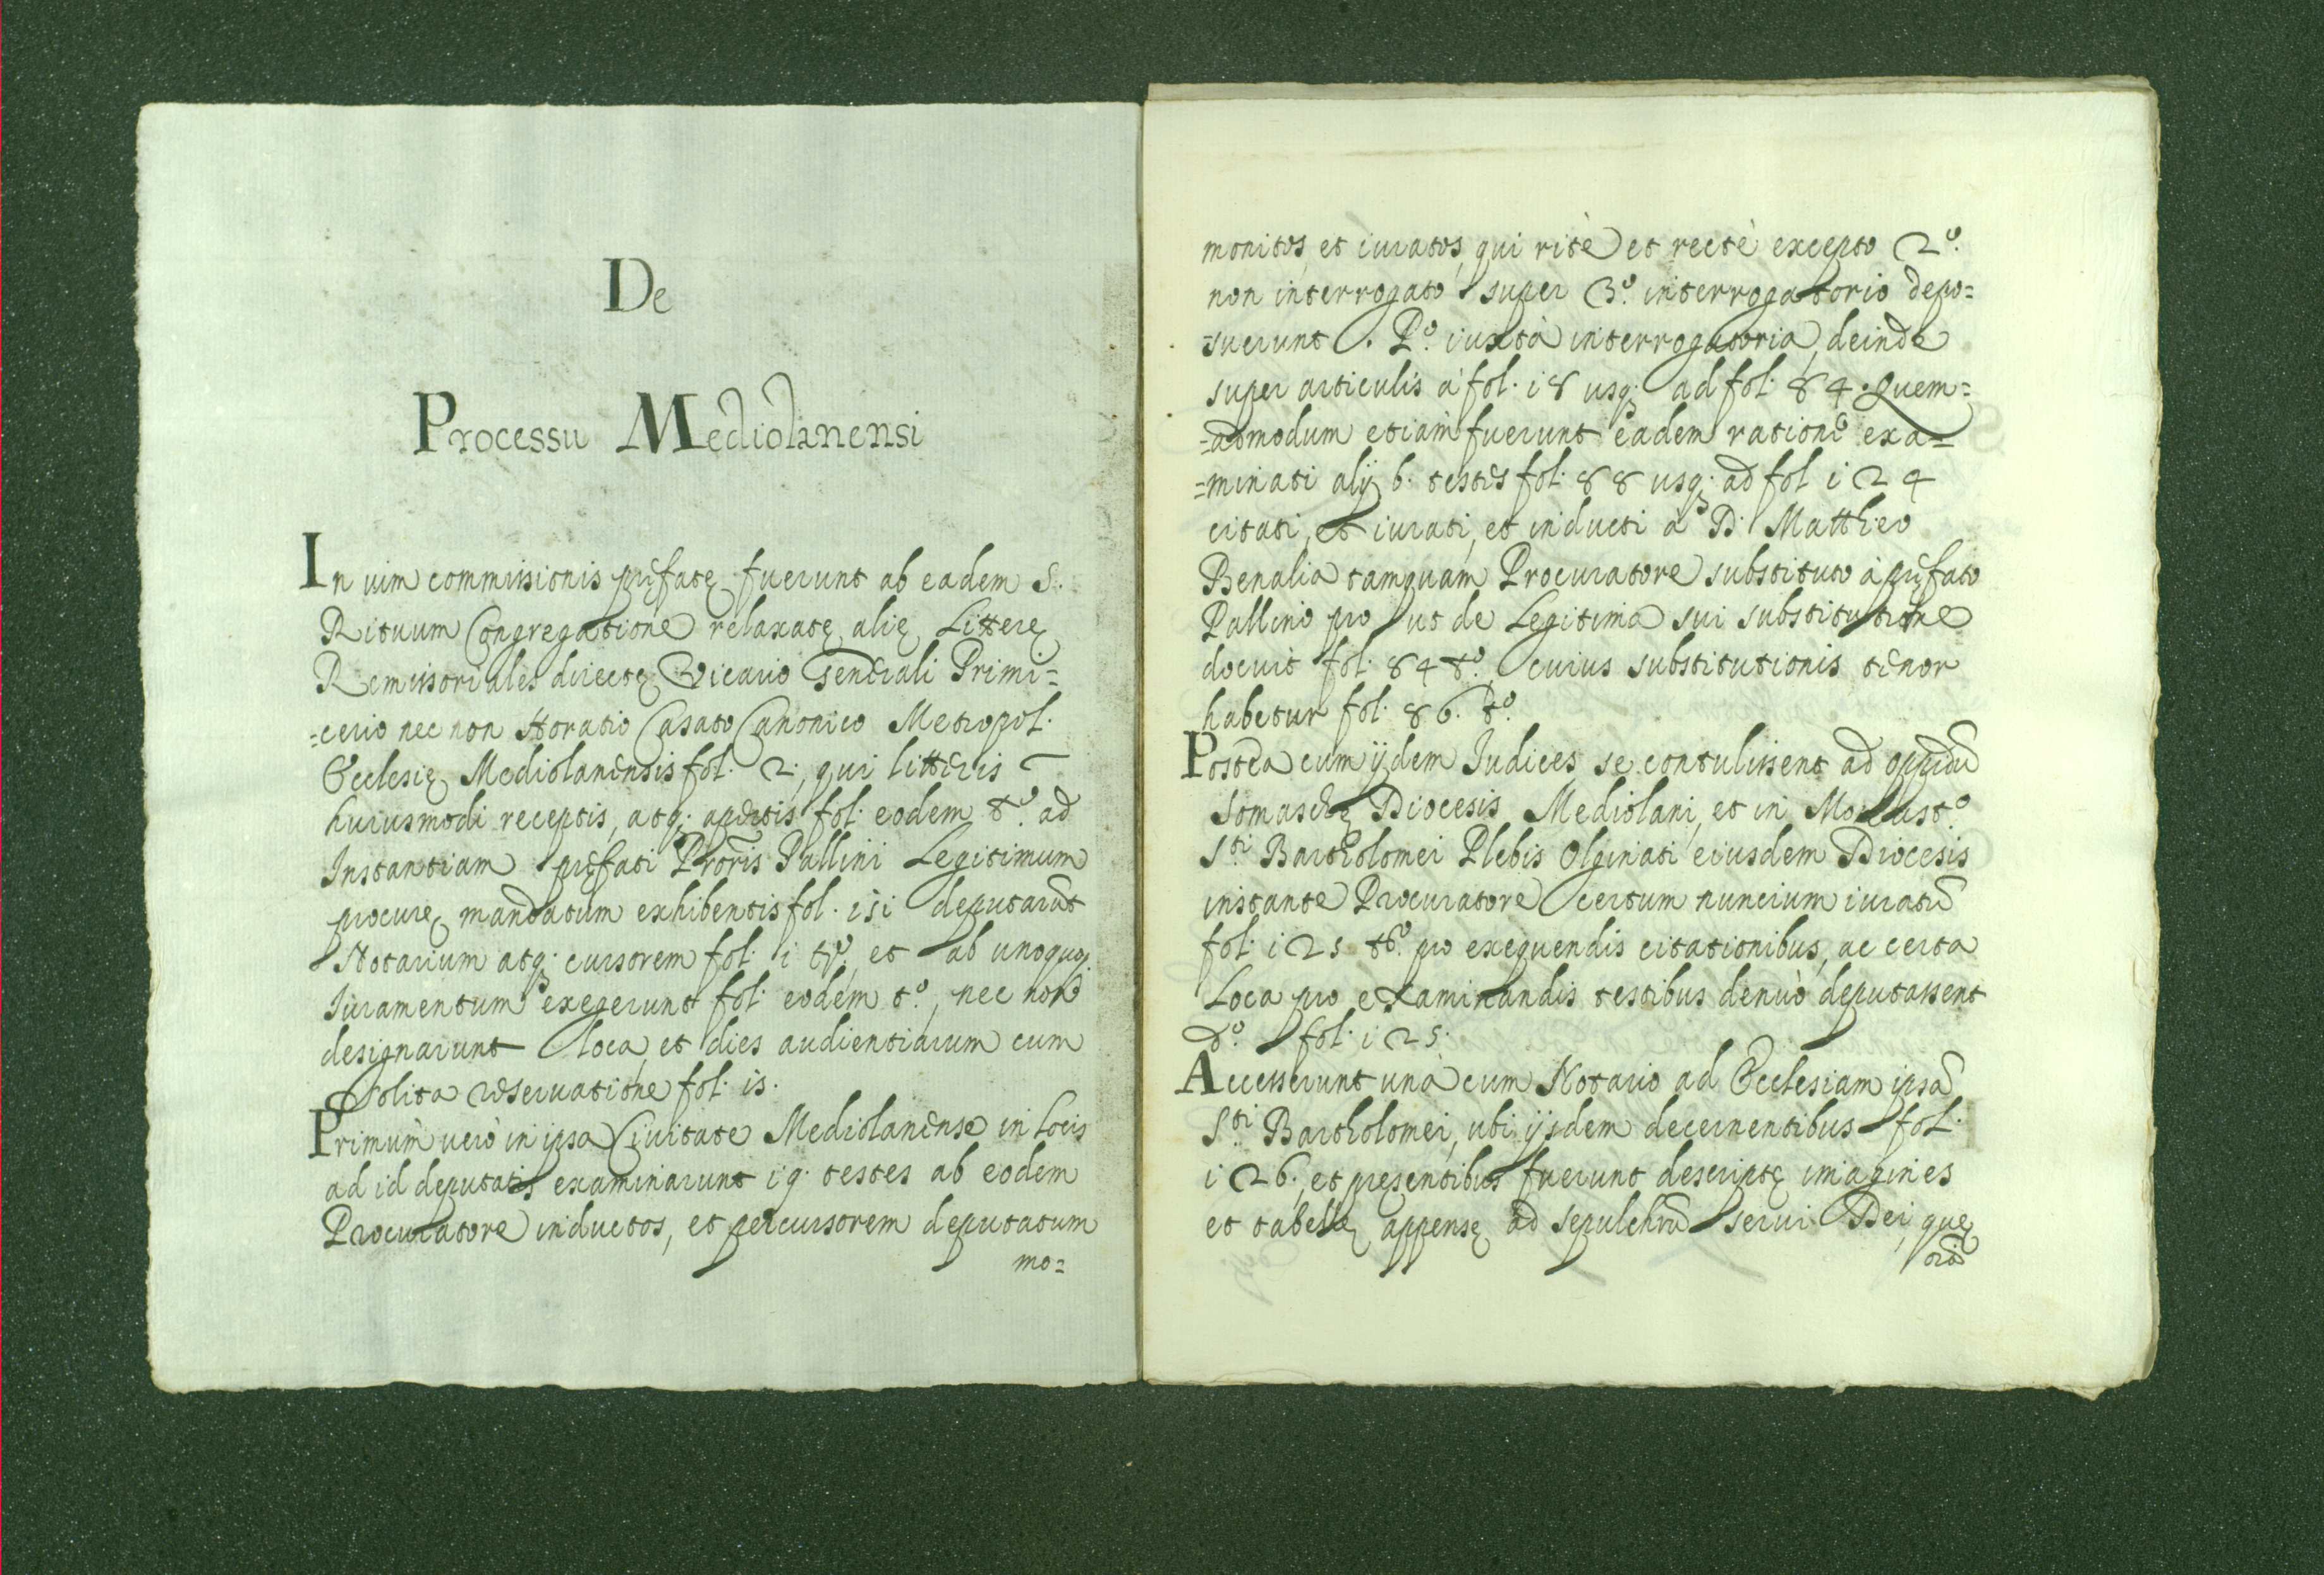 De
Processu Mediolanensi
In uim commissionis pręfatę fuerunt ab eadem S.
Rituum Congregatione relaxatę alię Litterę
Remissoriales directę Vicario Generali Primi=
=cerio nec non Horatio Casato Canonico Metropol.
Ecclesię Mediolanensis fol. 2., qui litteris
huiusmodi receptis, atq; apertis fol. eodem tº. ad
Instantiam pręfati Proris Pallini Legitimum
procurę mandatum exhibentis fol. 151 deputarũt
Notarium atq; cursorem fol. i tº., et ab unoquoq;
Iuramentum exegerunt fol. eodem tº., nec non
designarunt loca, et dies audientiarum cum
solita reseruatione fol. 15.
Primùm uerò in ipsa Ciuitate Mediolanense in Locis
ad id deputatis examinarunt 19. testes ab eodem
Procuratore inductos, et per cursorem deputatum
mo=
monitos, et iuratos, qui ritè et rectè excepto 2º.
non interrogato super 3º. interrogatorio depo=
=suerunt. Pº. iuxtà interrogatoria, deinde
super articulis à fol. 18 usq; ad fol. 84. Quem=
=admodum etiàm fuerunt eadem ratione exa=
=minati alij 6. testes fol. 88 usq; ad fol 124
citati, et iurati, et inducti à D. Mattheo
Benalia tamquam Procuratore substituto à pręfato
Pallino pro ut de Legitima sui substitutione
docuit fol. 84 tº., cuius substitutionis tenor
habetur fol. 86. tº.
Postea cum ijdem Iudices se contulissent ad oppidũ
Somaschę Diocesis Mediolani, et in Monastº.
Sti. Bartholomei Plebis Olginati eiusdem Diocesis
instante Procuratore certum nuncium iuratũ
fol. 125 tº. pro exequendis citationibus, ac certa
Loca pro examinandis testibus denuò deputassent
dº. fol. 125.
Accesserunt unà cum Notario ad Ecclesiam ipsã
Sti. Bartholomei, ubi ijsdem decernentibus fol.
126., et pręsentibus fuerunt descriptę imagines
et tabellę appensę ad sepulchrũ serui Dei, quę